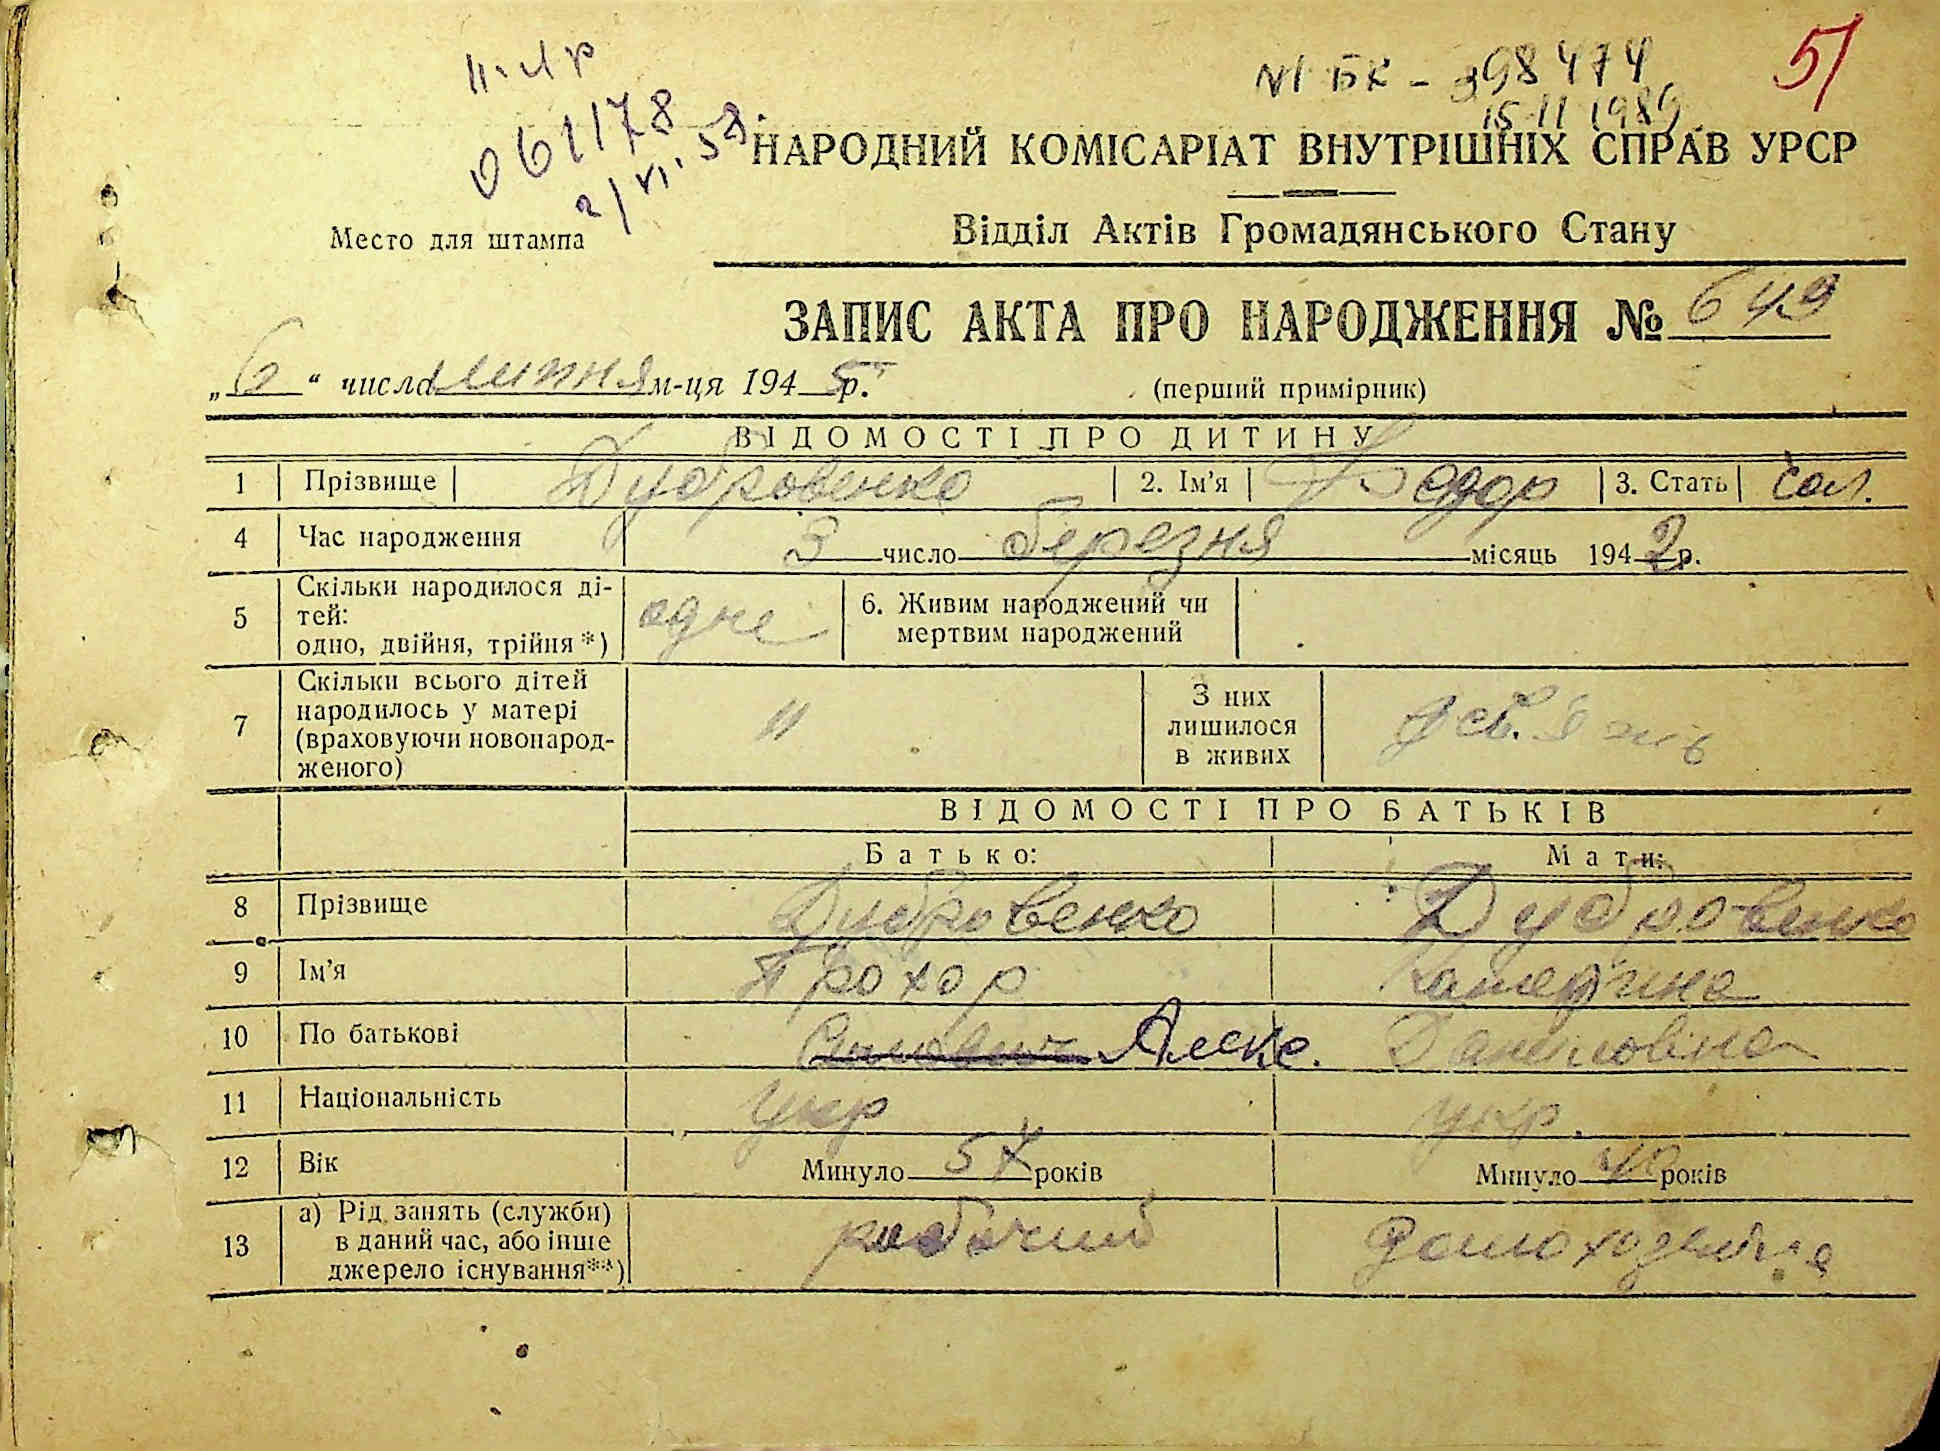 061178
2/VI. 58.
VI БК - 398474
15 11 1989
51
НАРОДНИЙ КОМІСАРІАТ ВНУТРІШНІХ СПРАВ УРСР
Место для штампа
Відділ Актів Громадянського Стану
ЗАПИС АКТА ПРО НАРОДЖЕННЯ № 649
„6“ числа липня м-ця 1945 р.
(перший примірник)
ВІДОМОСТІ ПРО ДИТИНУ
1 Прізвище Дубровенко 2. Ім'я Федор 3. Стать чол.
4 Час народження 3 число березня місяць 1942 р.
5 Скільки народилося ді-
тей:
одно, двійня, трійня*) одне
6. Живим народжений чи
мертвим народжений
7 Скільки всього дітей
народилось у матері
(враховуючи новонарод-
женого) 11
З них
лишилося
в живих
ВІДОМОСТІ ПРО БАТЬКІВ
Батько: Мати:
8 Прізвище Дубровенко Дубровенко
9 Ім'я Прохор Катерина
10 По батькові Алекс. Даниловна
11 Національність укр укр.
12 Вік Минуло 57 років Минуло 40 років
13 а) Рід занять (служби)
в даний час, або інше
джерело існування**) рабочий домохозяйка